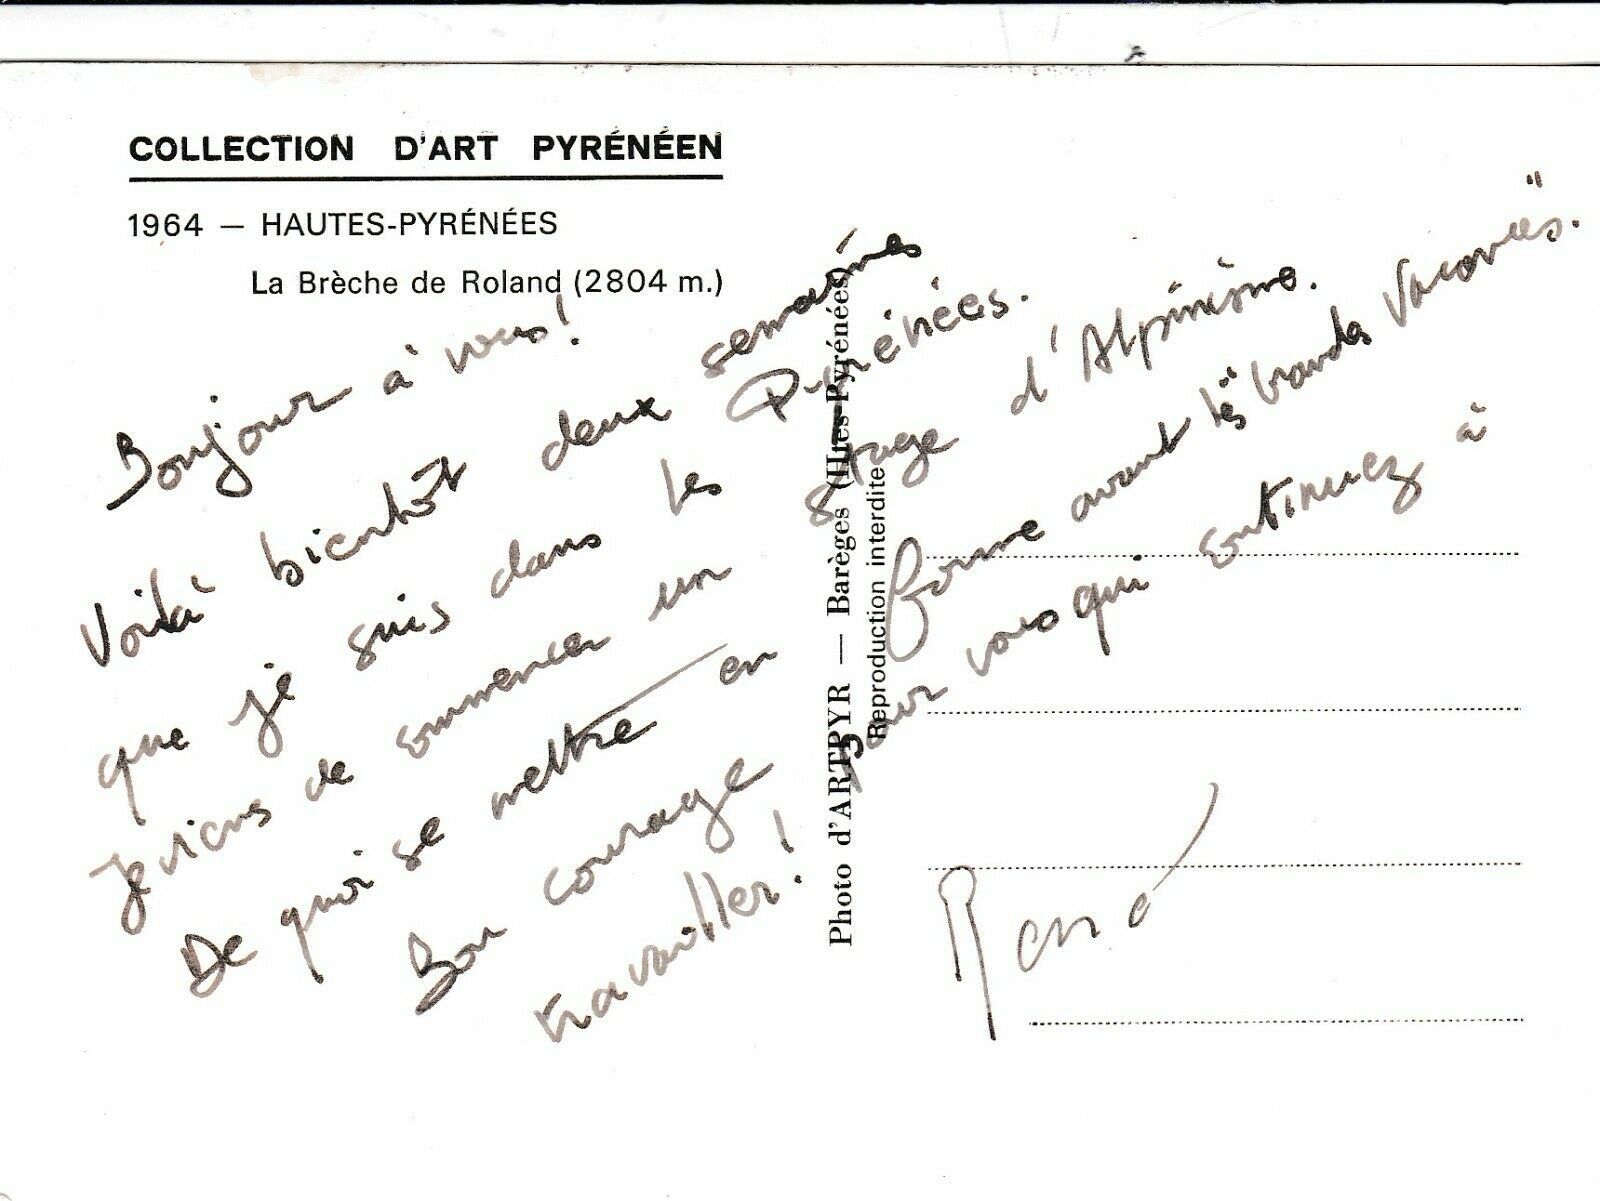 COLLECTION D'ART PYRÉNÉEN
1964 — HAUTES-PYRÉNÉES
La Brèche de Roland (2804 m.)
Bonjour à vous!
Voilà bientôt deux semaines
que je suis dans les Pyrénées.
Je viens de commencer un stage d'Alpinisme.
De quoi se mettre en forme avant les "Grandes Vacances".
Bon courage pour vous qui continuez à
travailler!
René
Photo d'ARTPYR — Barèges (Htes-Pyrénées)
Reproduction interdite